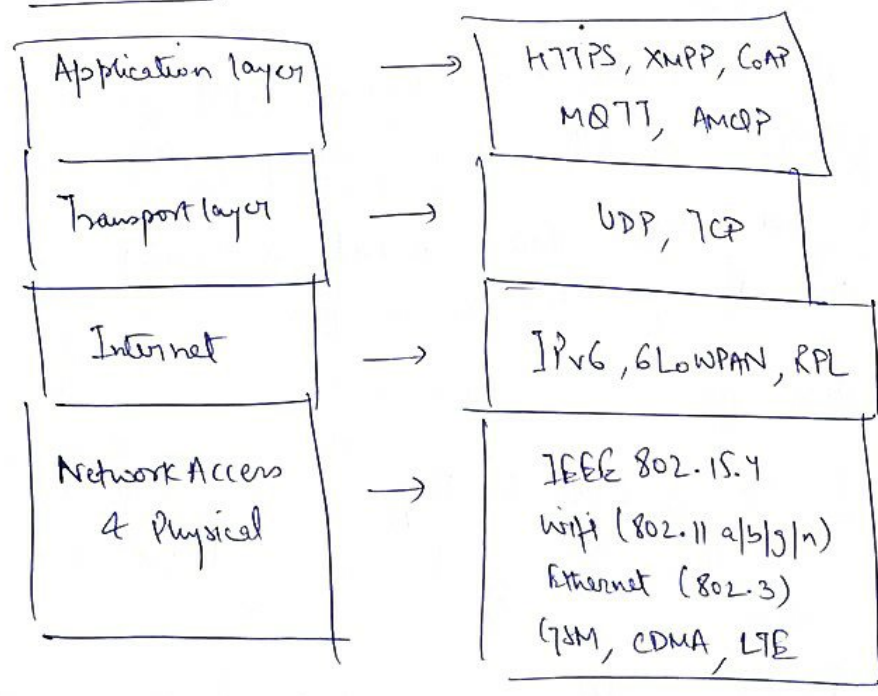 Application layer → HTTPS, XMPP, CoAP
MQTT, AMQP
Transport layer → UDP, TCP
Internet → IPv6, 6LoWPAN, RPL
Network Access → IEEE 802.15.4
& Physical
Wifi (802.11 a/b/g/n)
Ethernet (802.3)
GSM, CDMA, LTE